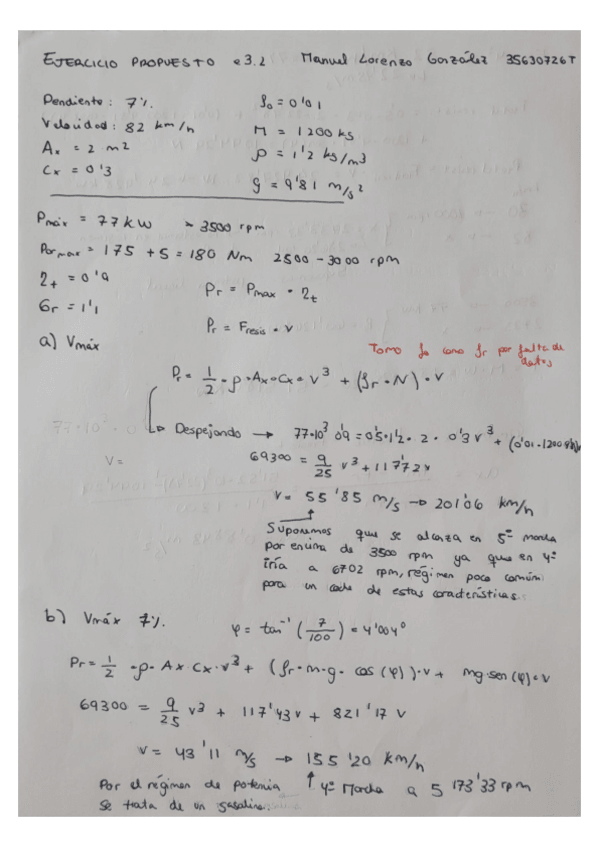 EJERCICIO PROPUESTO e3.2 Manuel Lorenzo González 35630726T
Pendiente: 7%. f₀ = 0'01
Velocidad: 82 km/h M = 1200 kg
Ax = 2 m² ρ = 1'2 kg/m³
Cx = 0'3 g = 9'81 m/s²
Pmáx = 77 kW 3500 rpm
Par max = 175 + 5 = 180 Nm 2500 - 3000 rpm
ηt = 0'9 Pr = Pmax · ηt
Gr = 1'1 Pr = Fresis · v
a) Vmáx
Tomo f₀ como fr por falta de
datos
Pr = 1/2 · ρ · Ax · Cx · v³ + (fr · N) · v
↳ Despejando → 77·10³ 0'9 = 0'5·1'2 · 2 · 0'3 v³ + (0'01·1200·9'81)v
V= 69300 = 9/25 v³ + 117'72v
v = 55'85 m/s → 201'06 km/h
Suponemos que se alcanza en 5ª marcha
por encima de 3500 rpm ya que en 4ª
iría a 6702 rpm, régimen poco común
para un coche de estas características.
b) Vmáx 7%. φ = tan⁻¹ (7/100) = 4'004°
Pr = 1/2 · ρ · Ax · Cx · v³ + (fr · m · g · cos (φ)) · v + mg · sen (φ) · v
69300 = 9/25 v³ + 117'43 v + 821'17 v
v = 43'11 m/s → 155'20 km/h
Por el régimen de potencia ↑ 4ª Marcha a 5 173'33 rpm
se trata de un gasolina.